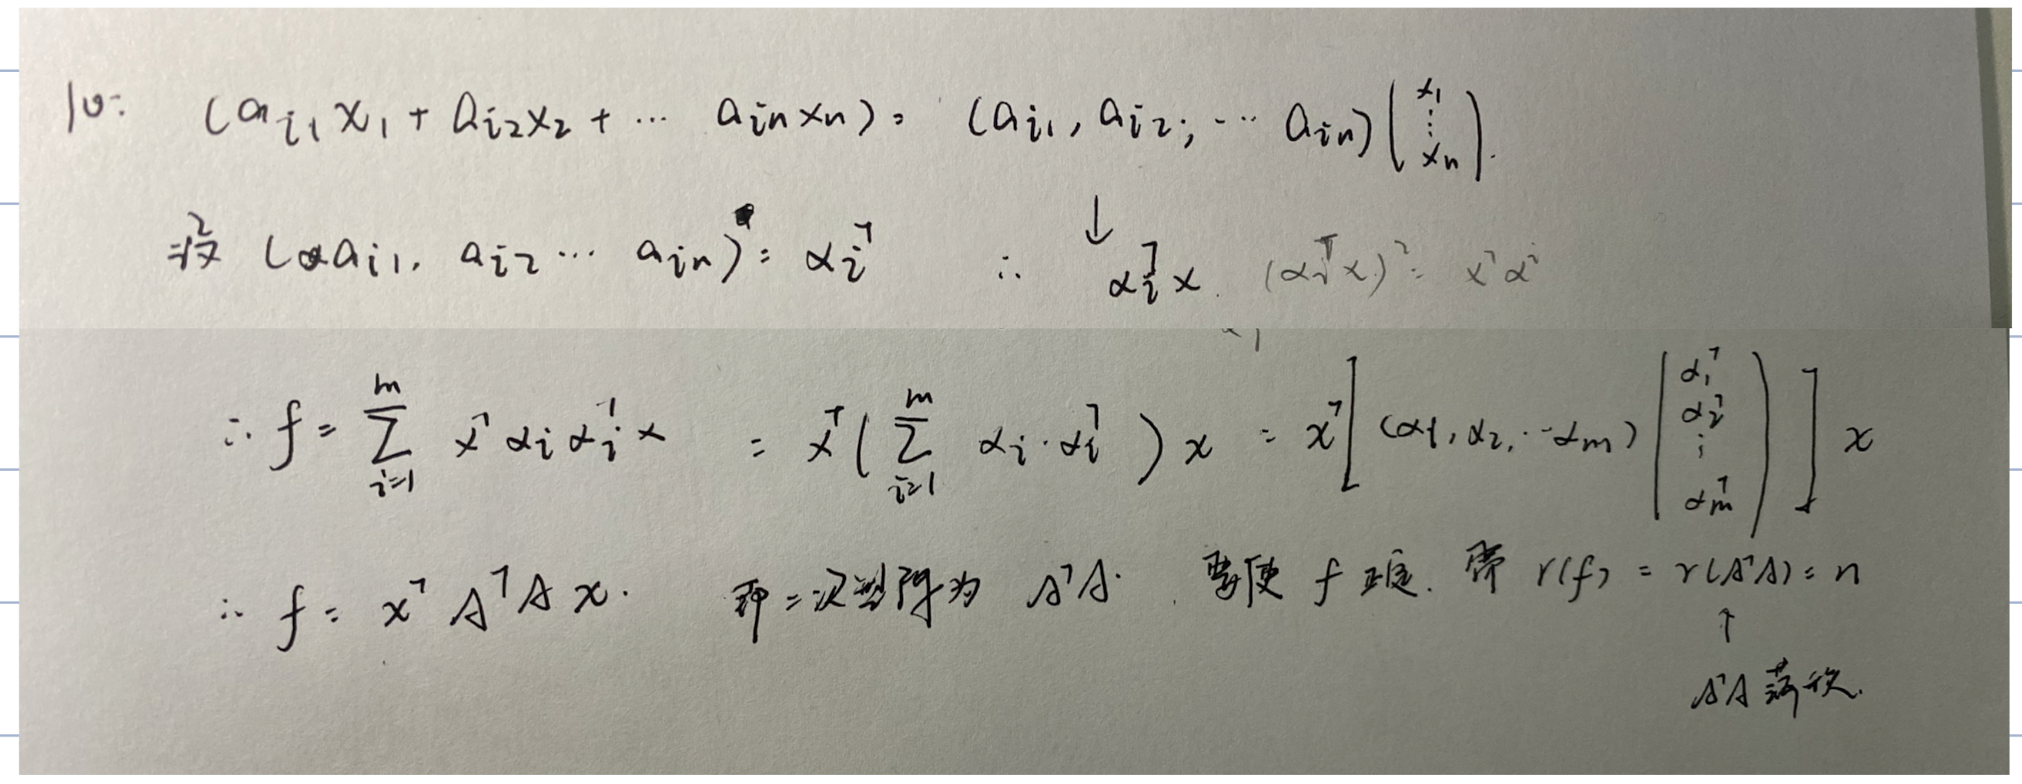 10: (a_{i1}x_1 + a_{i2}x_2 + ⋯ a_{in}x_n) = (a_{i1}, a_{i2}, ⋯ a_{in}) (x_1 ⋮ x_n).
设 (a_{i1}, a_{i2} ⋯ a_{in}) = α_i^T ∴ ↓ α_i^T x. (α_i^T x)^2 = x^T α
∴ f = Σ_{i=1}^{m} x^T α_i α_i^T x = x^T ( Σ_{i=1}^{m} α_i · α_i^T ) x = x^T [ (α_1, α_2, ⋯ α_m) (α_1^T α_2^T ⋮ α_m^T) ] x
∴ f = x^T A^T A x. 即二次型阵为 A^T A. 要使 f 正定. 需 r(f) = r(A^T A) = n
↑
A^T A 满秩.